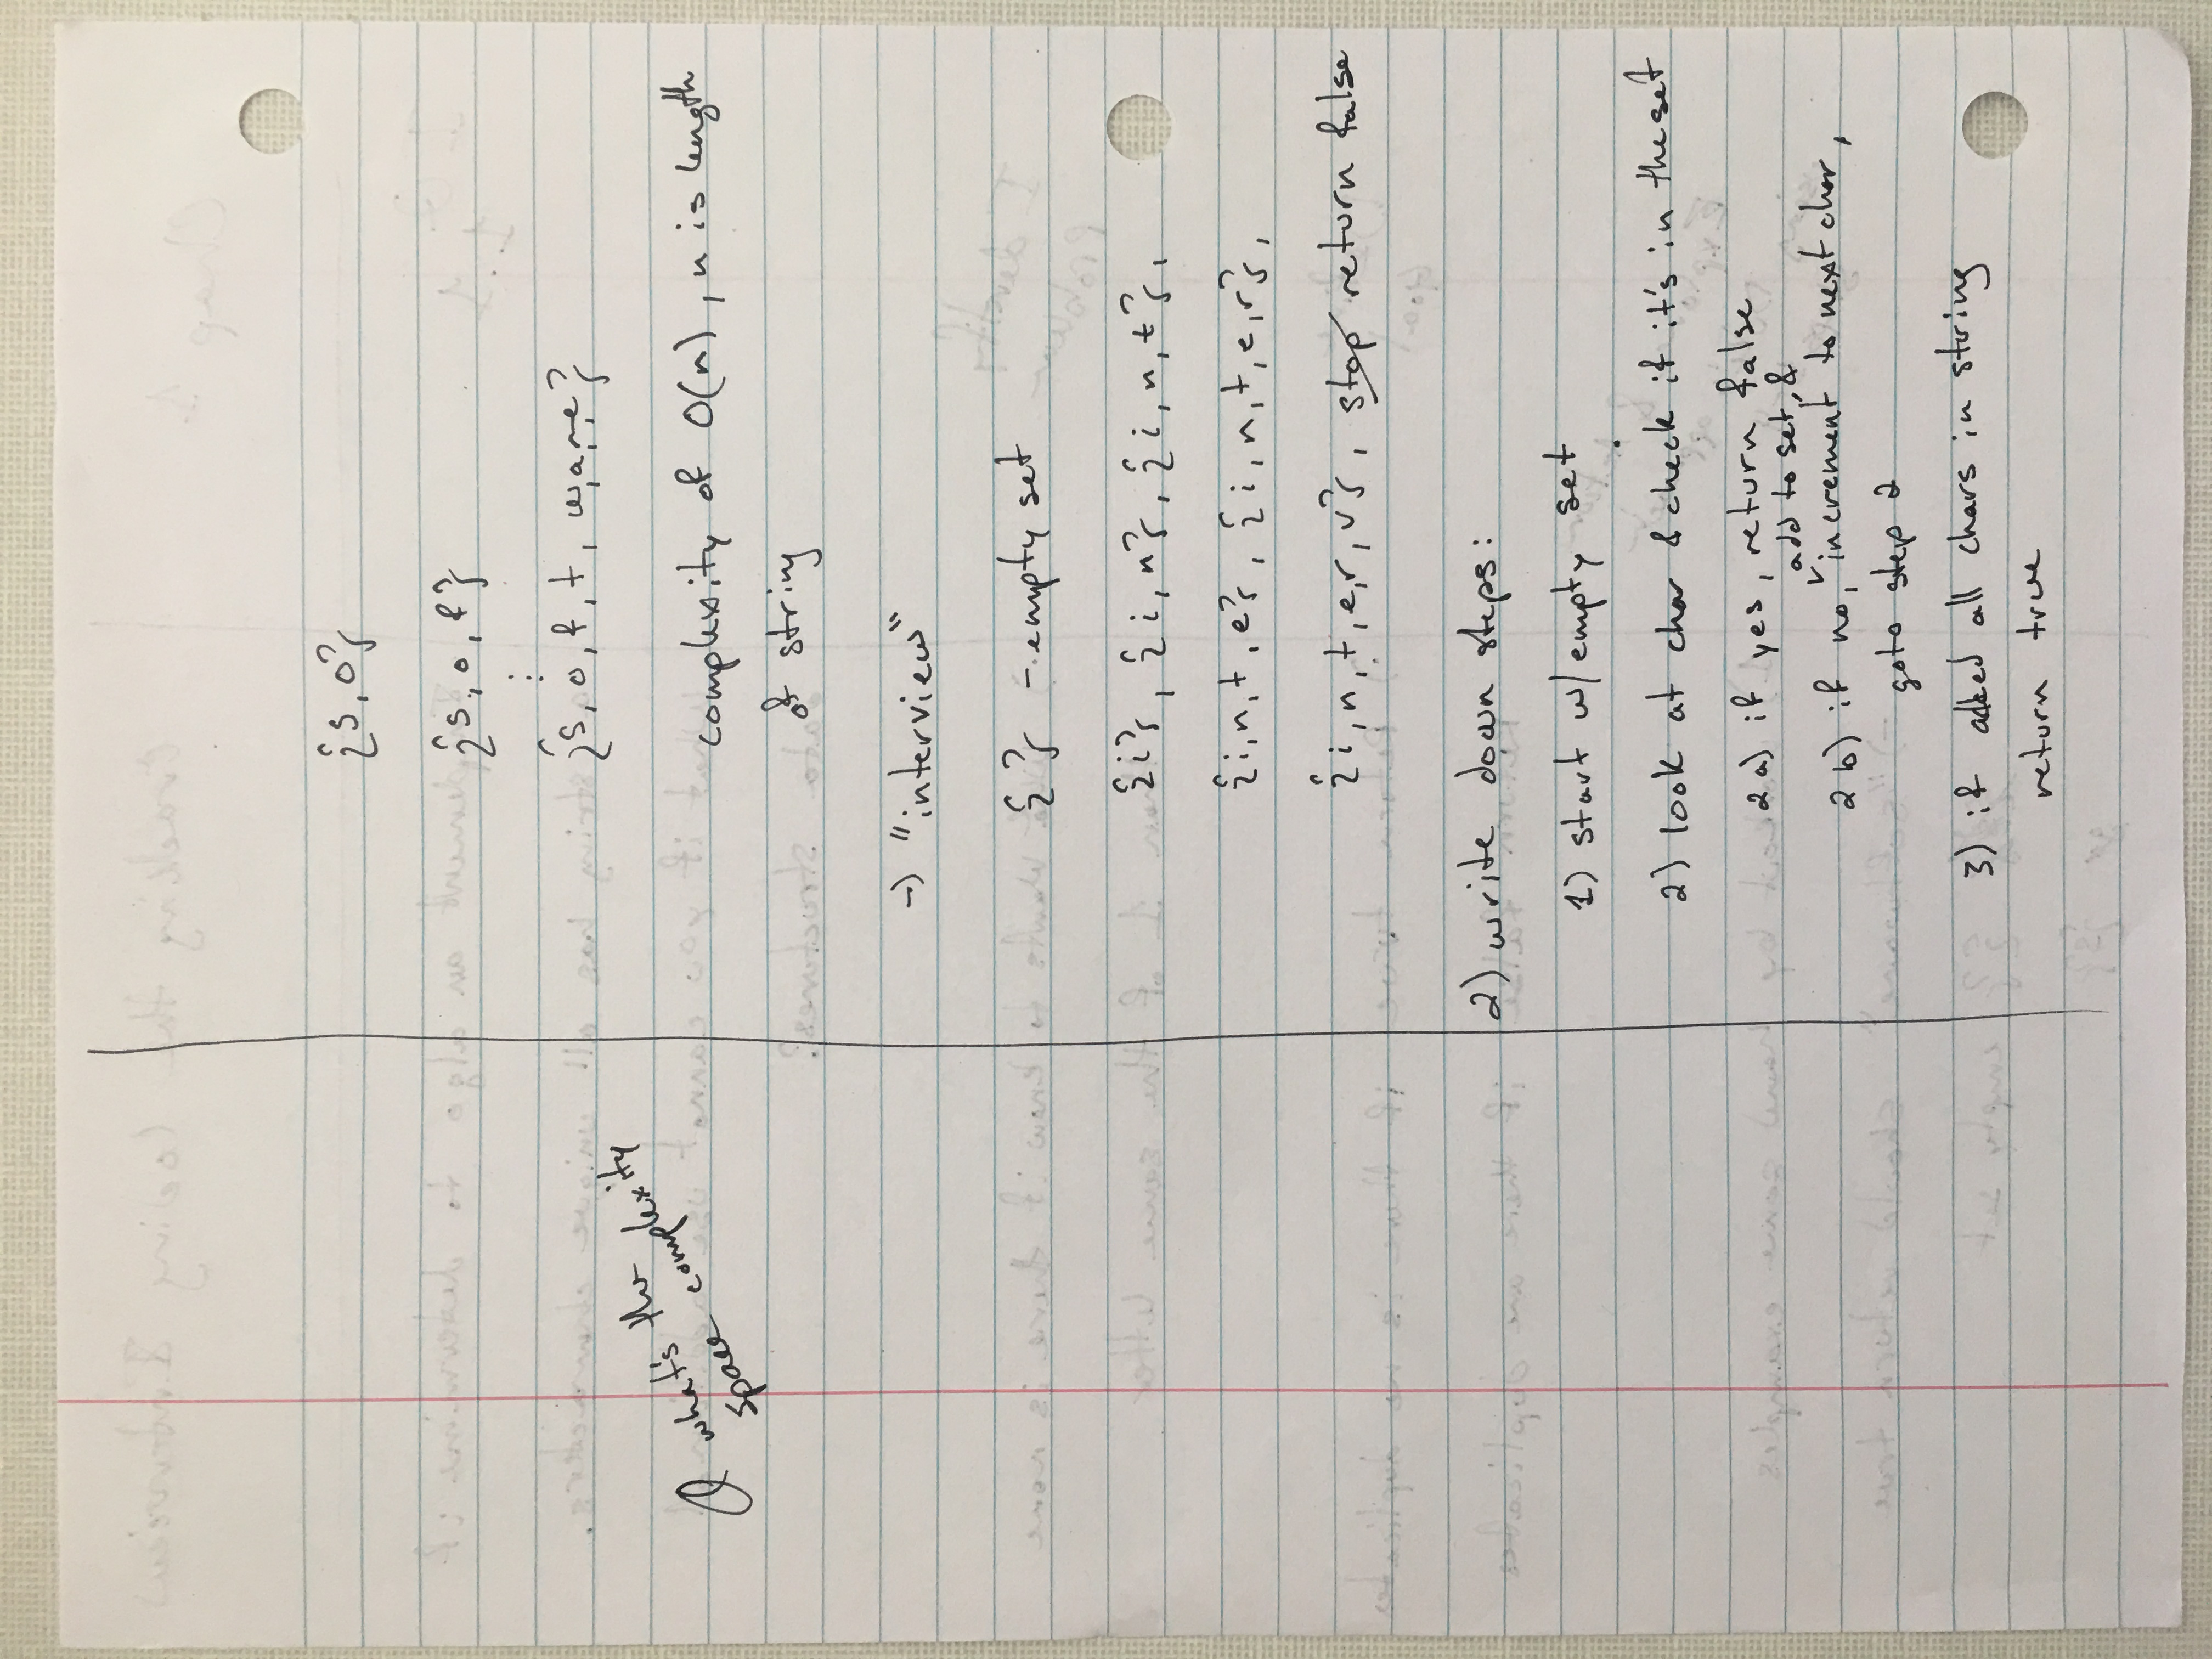 {s, o}
{s, o, f}
⋮
{s, o, f, t, w, a, r, e}
Q what's the
space complexity
complexity of O(n), n is length
of string
→ "interview"
{ } - empty set
{i}, {i, n}, {i, n, t},
{i, n, t, e}, {i, n, t, e, r},
{i, n, t, e, r, v}, stop return false
2) write down steps:
1) start w/ empty set
2) look at char & check if it's in the set
2a) if yes, return false
add to set, &
2b) if no, increment to next char,
goto step 2
3) if added all chars in string
return true